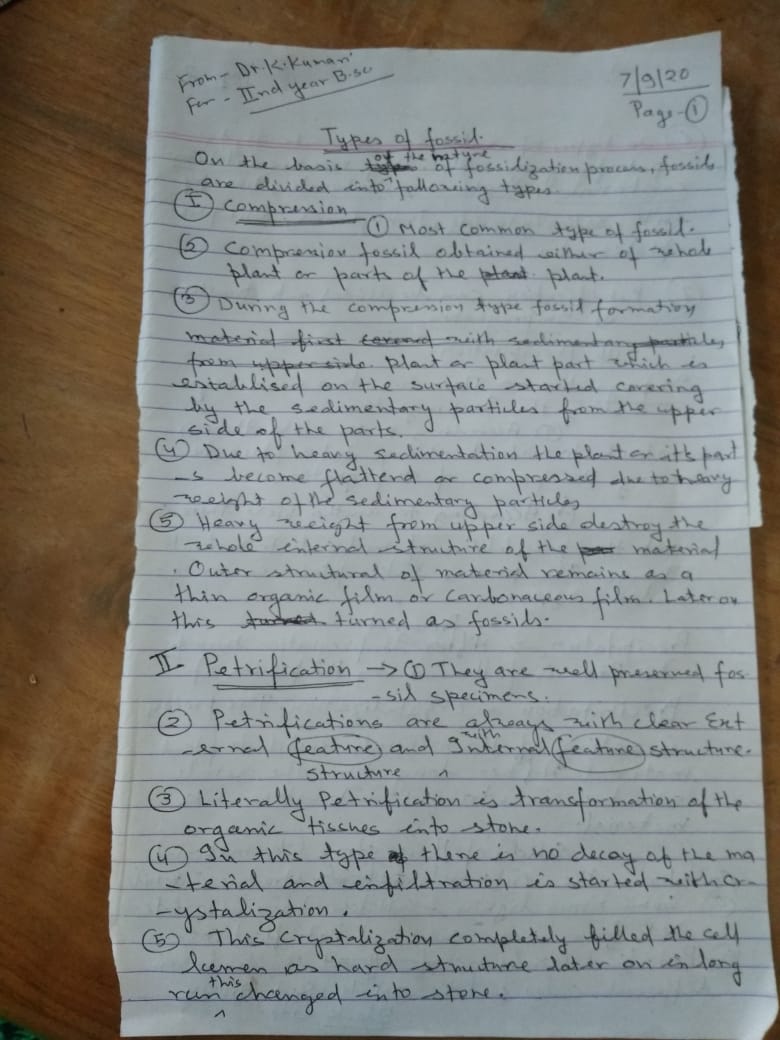 From - Dr. K. Kumari
For - IInd year B.sc
7/9/20
Page - ①
Types of fossil.
On the basis of the nature of fossilization process, fossils
are divided into following types.
Ⓘ Compression
① Most common type of fossil.
② Compression fossil obtained either of whole
plant or parts of the plant plant.
③ During the compression type fossil formation
material first covered with sedimentary particles,
from upper side. Plant or plant part which is
establised on the surface started covering
by the sedimentary particles from the upper
side of the parts.
④ Due to heavy sedimentation the plant or it's part
-s become flattend or compressed due to heavy
weight of the sedimentary particles
⑤ Heavy weight from upper side destroy the
whole internal structure of the material
. Outer structural of material remains as a
thin organic film or carbonaceous film. Later on
this turned turned as fossils.
II Petrification → ① They are well preserved fos
-sil specimens.
② Petrifications are always with clear Ext
-ernal feature and with Internal feature structure.
structure ^
③ Literally Petrification is transformation of the
organic tissues into stone.
④ In this type of there is no decay of the ma
-terial and infiltration is started with cr-
-ystalization.
⑤ This crystalization completely filled the cell
lumen as hard structure later on in long
run this changed into stone.
^